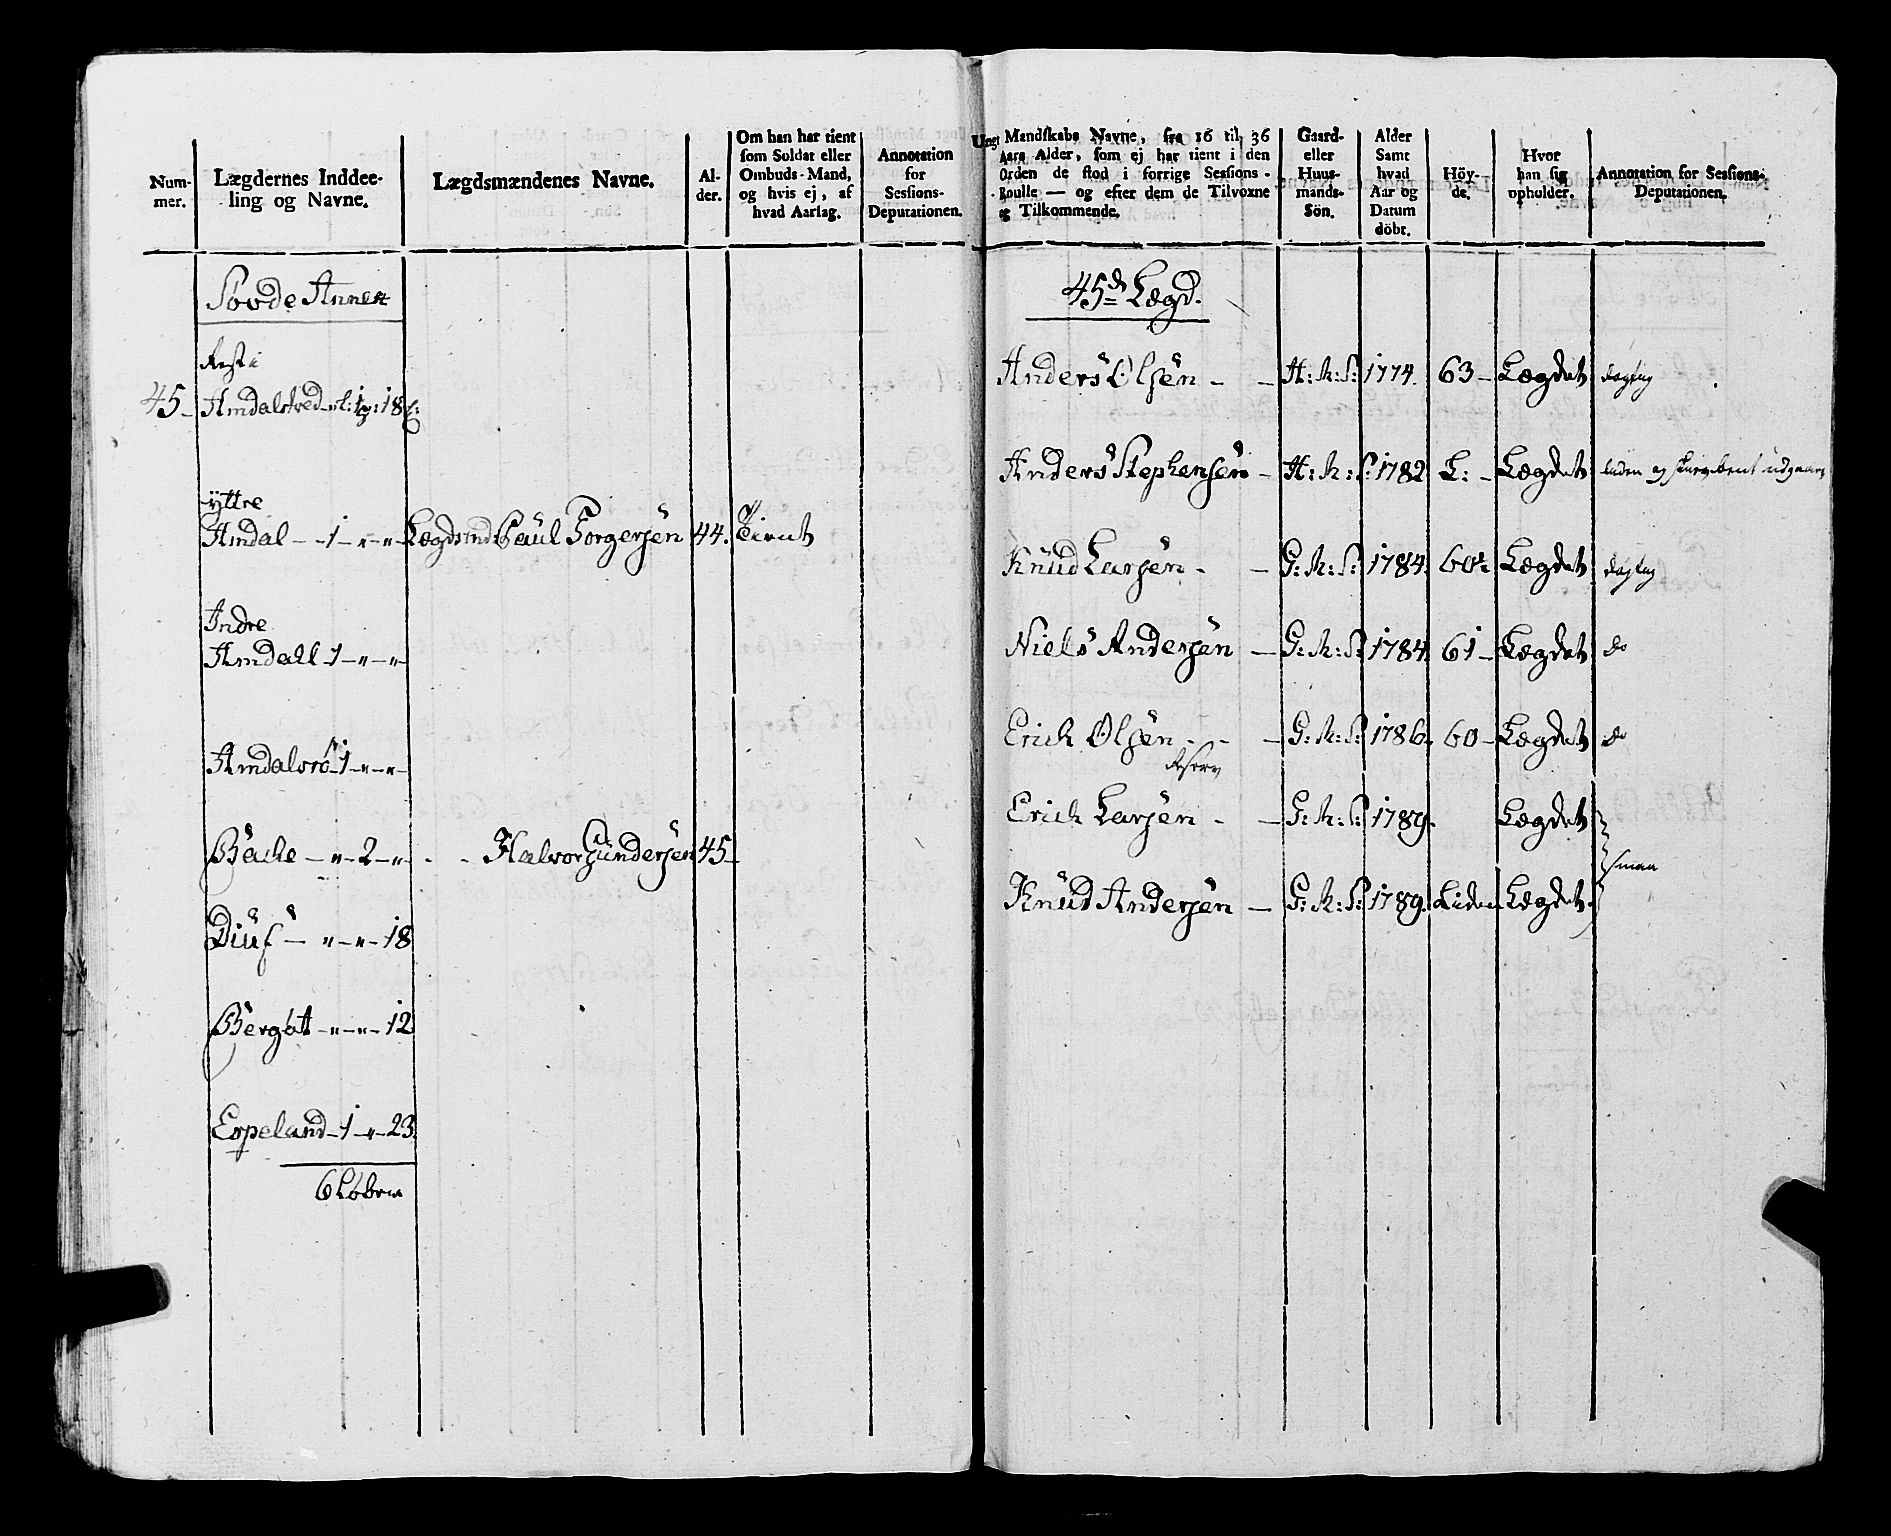 Num-
mer.
Lægdernes Inddee-
ling og Navne.
Lægdsmændenes Navne.
Al-
der.
Om han har tient
som Soldat eller
Ombuds-Mand,
og hvis ej, af
hvad Aarsag.
Annotation
for
Sessions-
Deputationen.
Søvde Annex
Rest i
45 Amdalstred
yttre
Amdal - 1 - " - " - Lægdsmd: Paul Torgersen 44. Tient
Indre
Amdall 1 - " - "
Amdalsrø 1 - " - "
Bache - " - 2 - " - - Halvor Gundersen 45
Diuf - " - " - 18
Bergøt - " - " - 12
Espeland - 1 - " - 23
6 Løbere
Ungt Mandskabs Navne, fra 16 til 36
Aars Alder, som ej har tient i den
Orden de stod i forrige Sessions-
Roulle — og efter dem de Tilvoxne
og Tilkommende.
Gaard-
eller
Huus-
mands-
Sön.
Alder
Samt
hvad
Aar og
Datum
döbt.
Höy-
de.
Hvor
han sig
opholder.
Annotation for Sessions-
Deputationen.
45de Lægd.
Anders Olsen - - H: M: S: 1774. 63 - Lægdet dogtug
Anders Stephensen - H: M: S: 1782 L: - Lægdet liden og udgaar
Knud Larsen - - G: M: S: 1784. 60 Lægdet dogtug
Niels Andersen - G: M: S: 1784. 61 - Lægdet do
Erich Olsen - - - G: M: S: 1786. 60 - Lægdet do
Reserv
Erich Larsen - - G: M: S: 1789. Lægdet
smaa
Knud Andersen - G: M: S: 1789. Liden Lægdet.